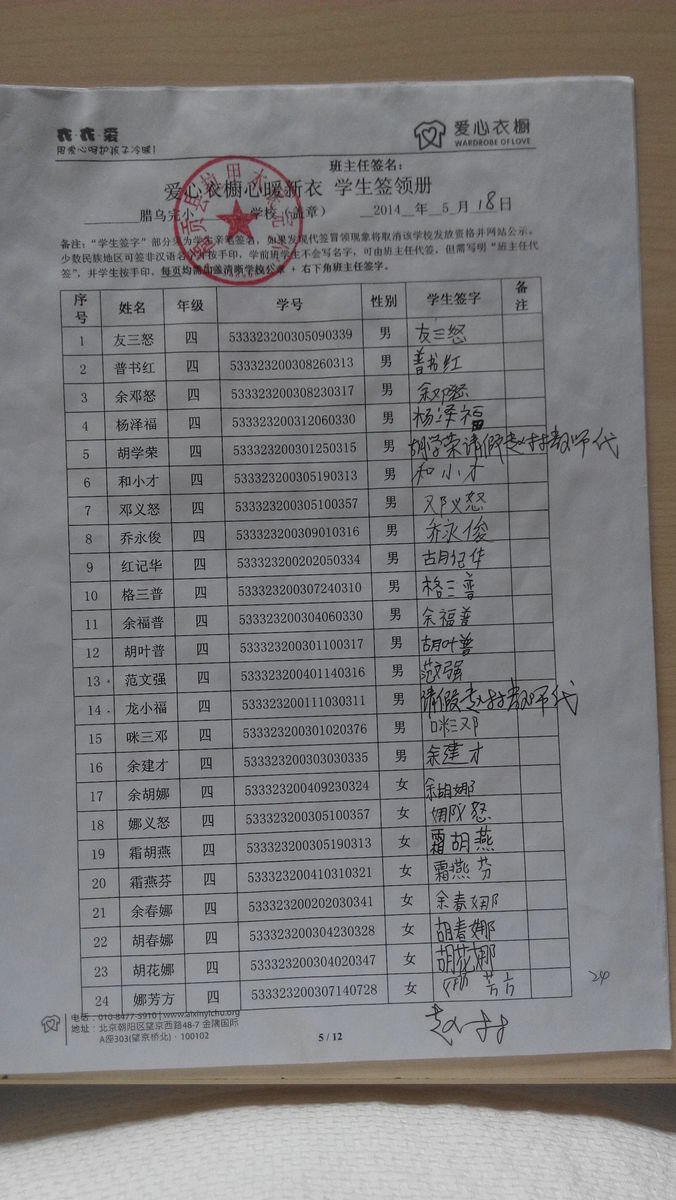 衣·衣·爱
用爱心呵护孩子冷暖!
爱心衣橱
WARDROBE OF LOVE
班主任签名：
爱心衣橱心暖新衣 学生签领册
腊乌完小 学校（盖章） 2014 年 5 月 18 日
备注：“学生签字”部分须为学生亲笔签名，如果发现代签冒领现象将取消该学校发放资格并网站公示。
少数民族地区可签非汉语名字并按手印，学前班学生不会写名字，可由班主任代签，但需写明“班主任代
签”，并学生按手印，每页均需加盖清晰学校公章 + 右下角班主任签字。
序号 姓名 年级 学号 性别 学生签字 备注
1 友三怒 四 533323200305090339 男 友三怒
2 普书红 四 533323200308260313 男 普书红
3 余邓怒 四 533323200308230317 男 余邓怒
4 杨泽福 四 533323200312060330 男 杨泽福
5 胡学荣 四 533323200301250315 男 胡学荣请假赵村教师代
6 和小才 四 533323200305190313 男 和小才
7 邓义怒 四 533323200305100357 男 邓义怒
8 乔永俊 四 533323200309010316 男 乔永俊
9 红记华 四 533323200202050334 男 古月记华
10 格三普 四 533323200307240310 男 格三普
11 余福普 四 533323200304060330 男 余福普
12 胡叶普 四 533323200301100317 男 胡叶普
13 范文强 四 533323200401140316 男 范文强
14 龙小福 四 533323200111030311 男 请假赵村教师代
15 咪三邓 四 533323200301020376 男 咪三邓
16 余建才 四 533323200303030335 男 余建才
17 余胡娜 四 533323200409230324 女 余胡娜
18 娜义怒 四 533323200305100357 女 娜义怒
19 霜胡燕 四 533323200305190313 女 霜胡燕
20 霜燕芬 四 533323200410310321 女 霜燕芬
21 余春娜 四 533323200202030341 女 余春娜
22 胡春娜 四 533323200304230328 女 胡春娜
23 胡花娜 四 533323200304020347 女 胡花娜
24 娜芳方 四 533323200307140728 女 娜芳方
24
电话：010-8477-5910 | www.aixinyichu.org
地址：北京朝阳区望京西路48-7 金隅国际
A座303(望京桥北)·100102
5 / 12